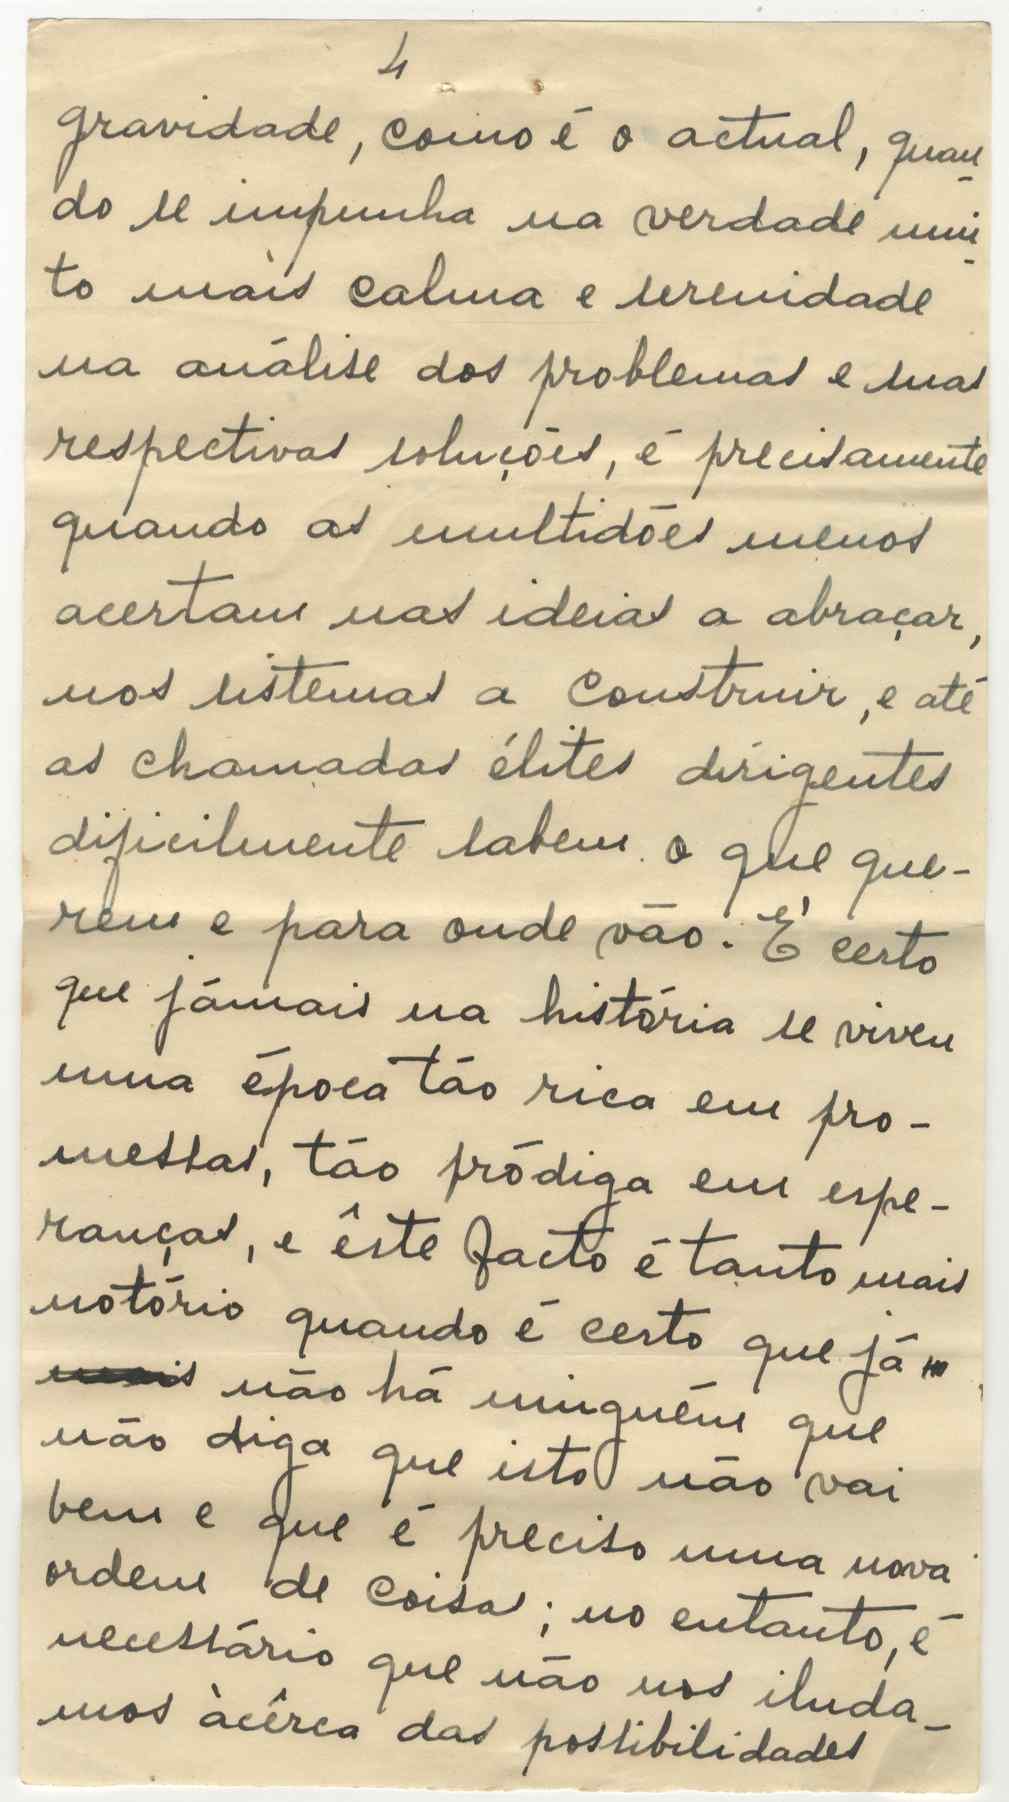 4
gravidade, como é o actual, quan-
do se impunha na verdade mui-
to mais calma e serenidade
na análise dos problemas e suas
respectivas soluções, é precisamente
quando as multidões menos
acertam nas ideias a abraçar,
nos sistemas a construir, e até
as chamadas élites dirigentes
dificilmente sabem o que que-
rem e para onde vão. É certo
que jámais na história se viveu
uma época tão rica em pro-
messas, tão pródiga em espe-
ranças, e êste facto é tanto mais
notório quando é certo que já
não há ninguém que
não diga que isto não vai
bem e que é preciso uma nova
ordem de coisas; no entanto, é
necessário que não nos iluda-
mos àcêrca das possibilidades